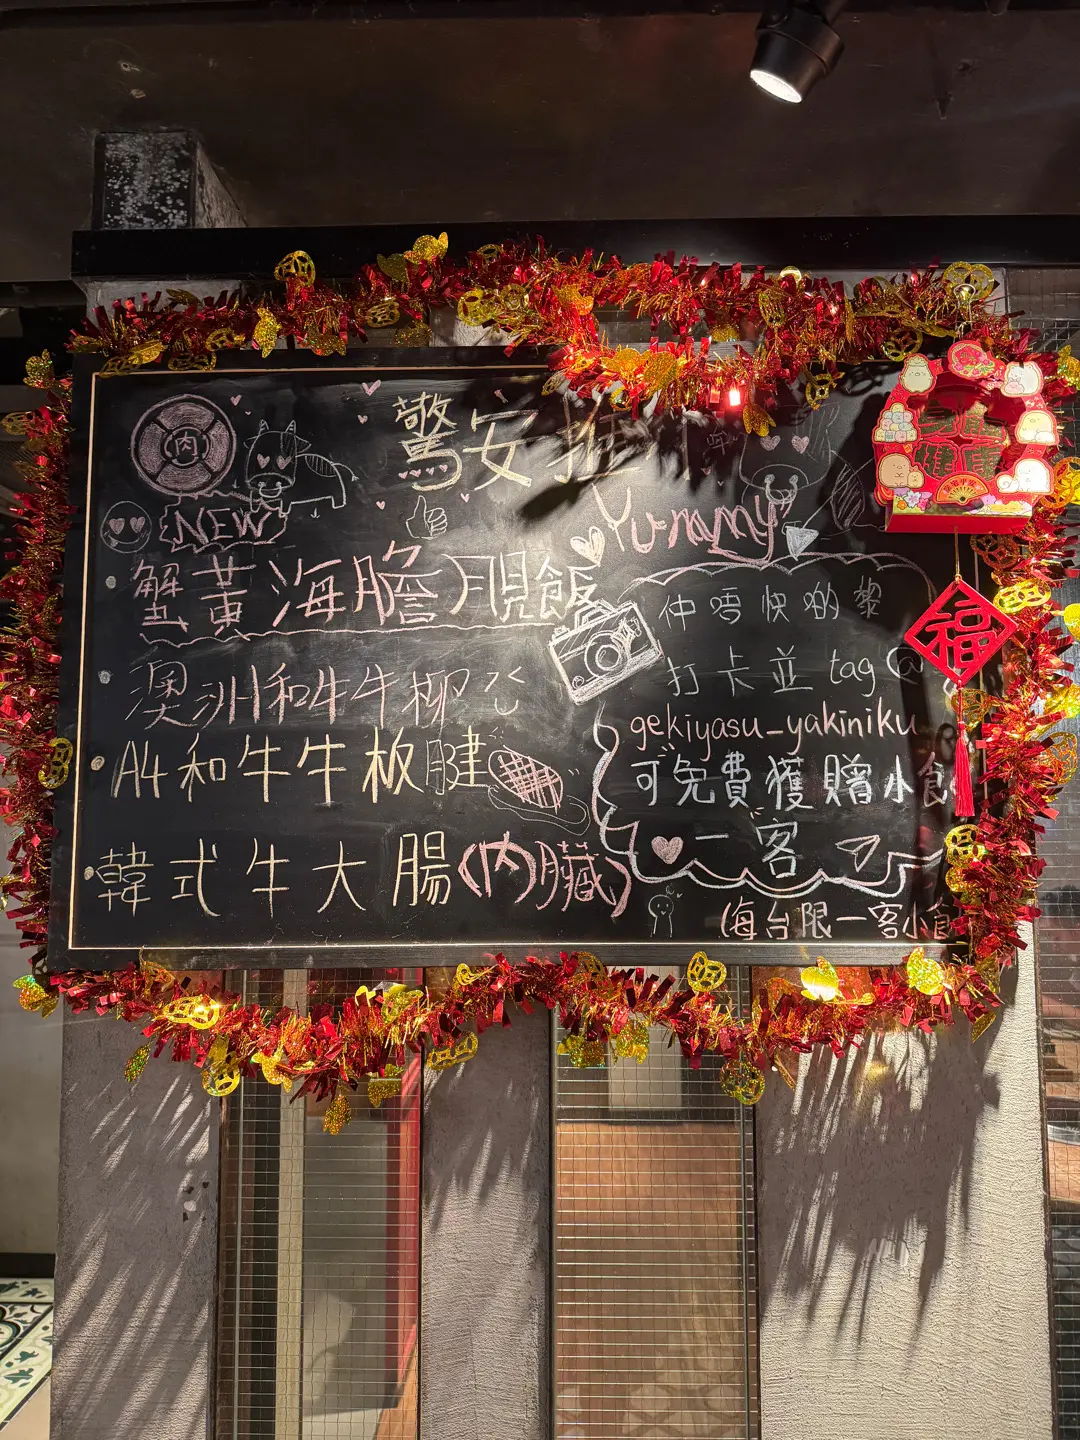 驚安推介
肉
NEW
Yummy
蟹黃海膽月見飯
澳洲和牛牛柳
A4和牛牛板腱
韓式牛大腸(內臟)
仲唔快啲黎
打卡並 tag @
gekiyasu_yakiniku
可免費獲贈小食
一客
(每台限一客小食
身體
健康
福